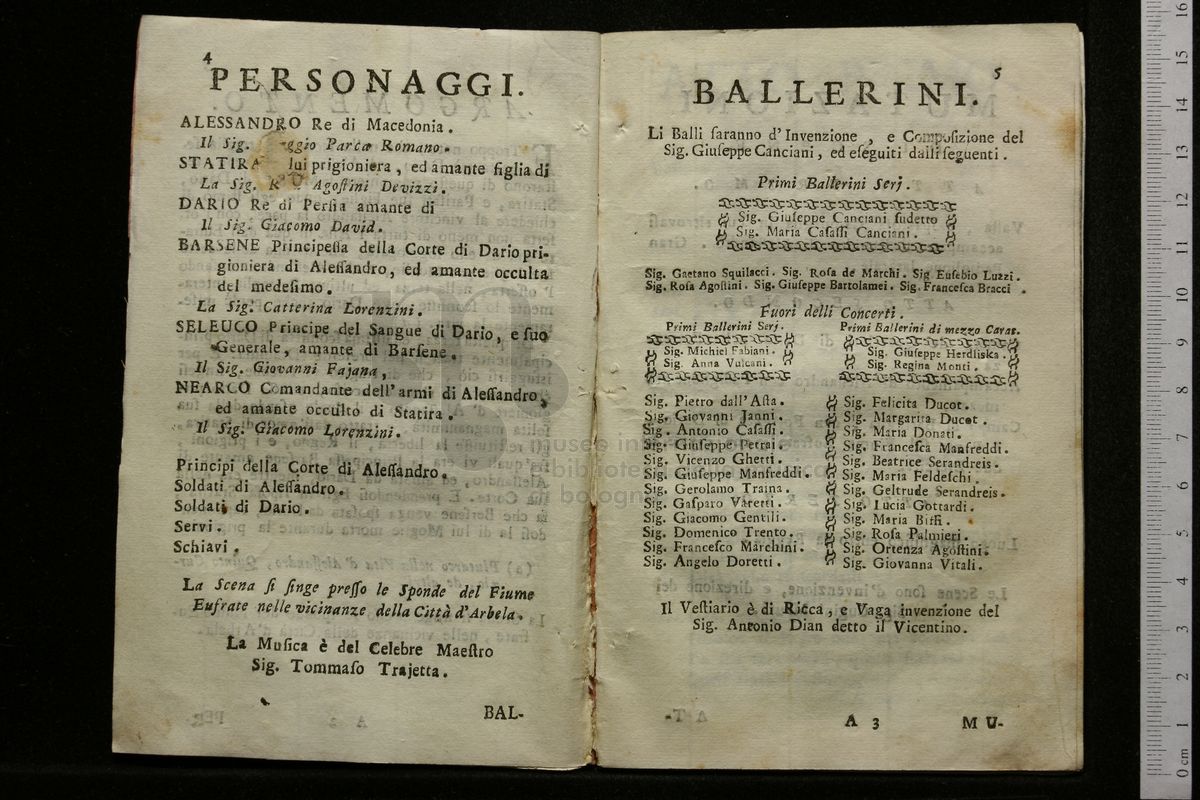 4
PERSONAGGI.
ALESSANDRO Re di Macedonia.
Il Sig. Parca Romano.
STATIRA lui prigioniera, ed amante figlia di
La Sig. Agoſtini Devizzi.
DARIO Re di Perſia amante di
Il Sig. Giacomo David.
BARSENE Principeſſa della Corte di Dario pri-
gioniera di Aleſſandro, ed amante occulta
del medeſimo.
La Sig. Catterina Lorenzini.
SELEUCO Principe del Sangue di Dario, e ſuo
Generale, amante di Barſene.
Il Sig. Giovanni Fajana,
NEARCO Comandante dell'armi di Aleſſandro,
ed amante occulto di Statira.
Il Sig. Giacomo Lorenzini.
Principi della Corte di Aleſſandro.
Soldati di Aleſſandro.
Soldati di Dario.
Servi.
Schiavi.
La Scena ſi finge preſſo le Sponde del Fiume
Eufrate nelle vicinanze della Città d'Arbela.
La Muſica è del Celebre Maeſtro
Sig. Tommaſo Trajetta.
BAL-
5
BALLERINI.
Li Balli ſaranno d'Invenzione, e Compoſizione del
Sig. Giuſeppe Canciani, ed eſeguiti dalli ſeguenti.
Primi Ballerini Serj.
Sig. Giuſeppe Canciani ſudetto
Sig. Maria Caſaſſi Canciani.
Sig. Gaetano Squilacci. Sig. Roſa de Marchi. Sig Euſebio Luzzi.
Sig. Roſa Agoſtini. Sig. Giuſeppe Bartolamei. Sig. Franceſca Bracci.
Fuori delli Concerti.
Primi Ballerini Serj.
Sig. Michiel Fabiani.
Sig. Anna Vulcani.
Primi Ballerini di mezzo Carat.
Sig. Giuſeppe Herdliska.
Sig. Regina Monti.
Sig. Pietro dall'Aſta.
Sig. Giovanni Janni.
Sig. Antonio Caſaſſi.
Sig. Giuſeppe Petrai.
Sig. Vicenzo Ghetti.
Sig. Giuſeppe Manfreddi.
Sig. Gerolamo Traina.
Sig. Gaſparo Varetti.
Sig. Giacomo Gentili.
Sig. Domenico Trento.
Sig. Franceſco Marchini.
Sig. Angelo Doretti.
Sig. Felicita Ducot.
Sig. Margarita Ducot.
Sig. Maria Donati.
Sig. Franceſca Manfreddi.
Sig. Beatrice Serandreis.
Sig. Maria Feldeſchi.
Sig. Geltrude Serandreis.
Sig. Lucia Gottardi.
Sig. Maria Biffi.
Sig. Roſa Palmieri.
Sig. Ortenza Agoſtini.
Sig. Giovanna Vitali.
Il Veſtiario è di Ricca, e Vaga invenzione del
Sig. Antonio Dian detto il Vicentino.
A 3
MU-